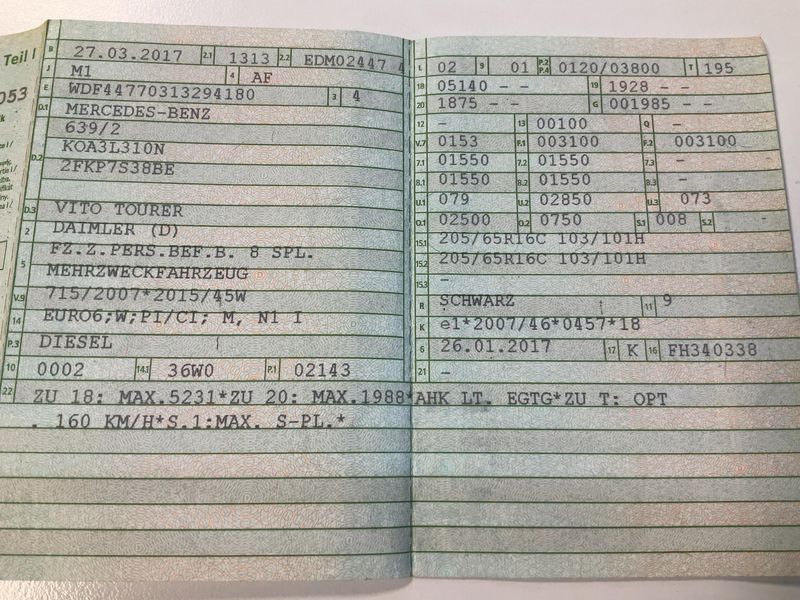 Teil I
053
B 27.03.2017 2.1 1313 2.2 EDM02447 4
J M1 4 AF
E WDF44770313294180 3 4
D.1 MERCEDES-BENZ
639/2
D.2 KOA3L310N
2FKP7S38BE
D.3 VITO TOURER
2 DAIMLER (D)
5 FZ.Z.PERS.BEF.B. 8 SPL.
MEHRZWECKFAHRZEUG
V.9 715/2007*2015/45W
14 EURO6;W;PI/CI; M, N1 I
P.3 DIESEL
10 0002 14.1 36W0 P.1 02143
L 02 9 01 P.2 P.4 0120/03800 T 195
18 05140 - - 19 1928 - -
20 1875 - - G 001985 - -
12 - 13 00100 Q -
V.7 0153 F.1 003100 F.2 003100
7.1 01550 7.2 01550 7.3 -
8.1 01550 8.2 01550 8.3 -
U.1 079 U.2 02850 U.3 073
O.1 02500 O.2 0750 S.1 008 S.2
15.1 205/65R16C 103/101H
15.2 205/65R16C 103/101H
15.3 -
R SCHWARZ 11 9
K e1*2007/46*0457*18
6 26.01.2017 17 K 16 FH340338
21 -
22 ZU 18: MAX.5231*ZU 20: MAX.1988*AHK LT. EGTG*ZU T: OPT
. 160 KM/H*S.1:MAX. S-PL.*